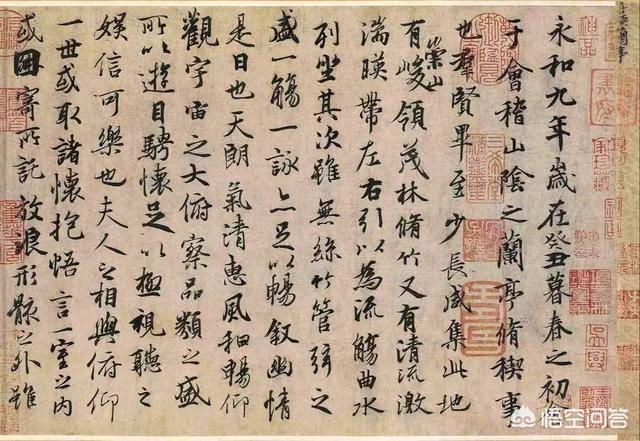 永和九年歲在癸丑暮春之初會
于會稽山陰之蘭亭脩稧事
也羣賢畢至少長咸集此地
有崇山峻領茂林脩竹又有清流激
湍暎帶左右引以為流觴曲水
列坐其次雖無絲竹管弦之
盛一觴一詠亦足以暢敘幽情
是日也天朗氣清惠風和暢仰
觀宇宙之大俯察品類之盛
所以遊目騁懷足以極視聽之
娛信可樂也夫人之相與俯仰
一世或取諸懷抱悟言一室之內
或因寄所託放浪形骸之外雖
神品
悟空问答